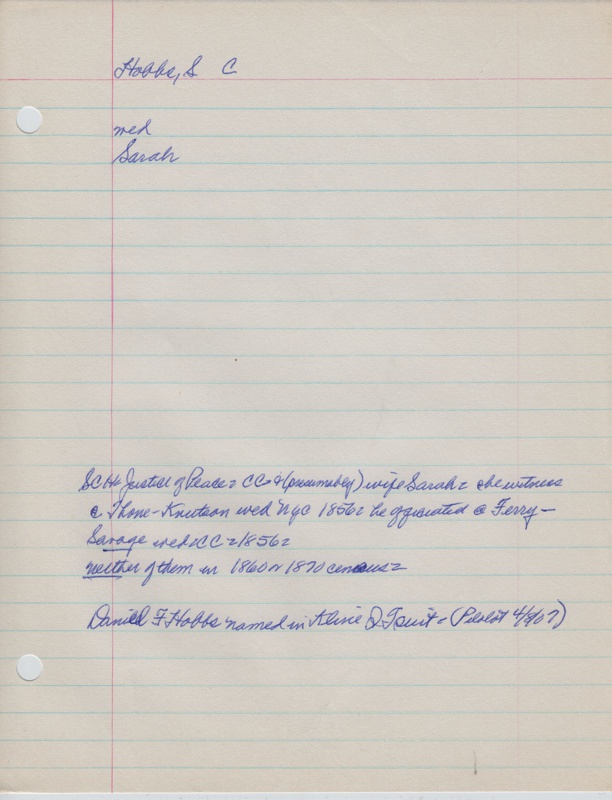 Hobbs, S C
wed
Sarah
SCH= Justice of Peace= CCo & (presumabley) wife Sarah= she witness
@ Thone-Knutson wed Nyc 1856= he officiated @ Ferry-
Savage wed=CC=1856=
neither of them in 1860 or 1870 census=
Daniel F Hobbs named in Q Tsuit= (Pilot 4/9/07)